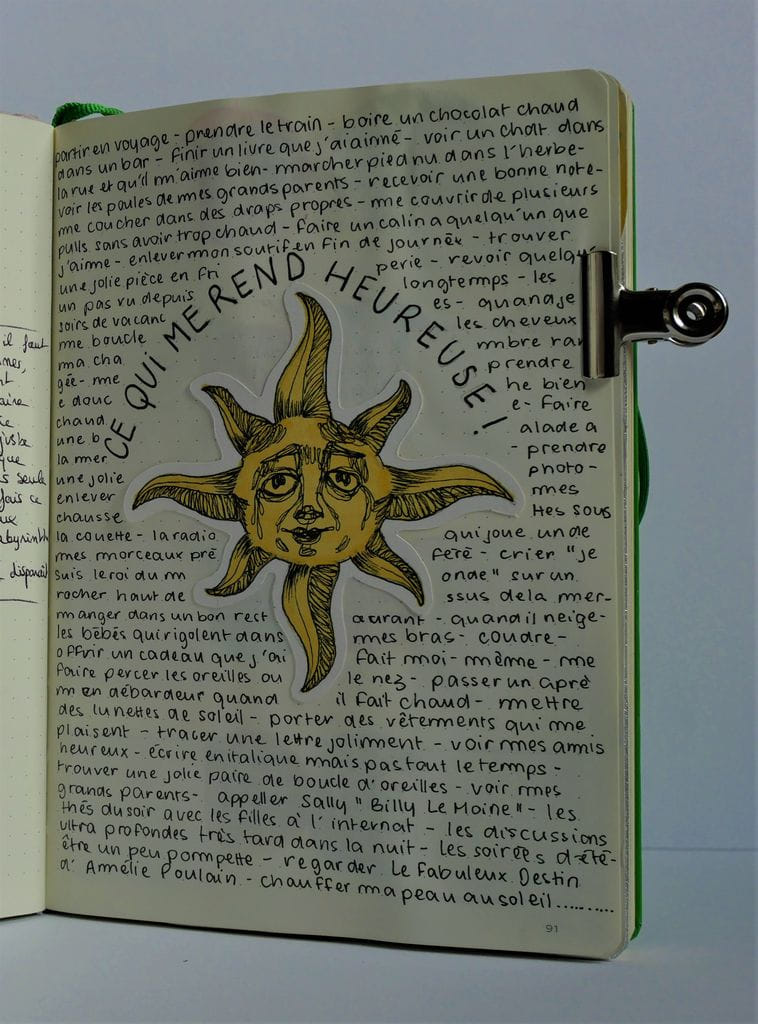 partir en voyage - prendre le train - boire un chocolat chaud
dans un bar - finir un livre que j'ai aimé - voir un chat dans
la rue et qu'il m'aime bien - marcher pied nu dans l'herbe -
voir les poules de mes grands parents - recevoir une bonne note -
me coucher dans des draps propres - me couvrir de plusieurs
pulls sans avoir trop chaud - faire un calin a quelqu'un que
j'aime - enlever mon soutif en fin de journée - trouver
une jolie pièce en fri perie - revoir quelqu
un pas vu depuis longtemps - les
soirs de vacanc es - quand je
me boucle les cheveux
ma cha mbre ran
gée - me prendre
e douc he bien
chaud e - faire
une b alade a
la mer - prendre
une jolie photo -
enlever mes
chausse ttes sous
la couette - la radio qui joue un de
mes morceaux pré féré - crier "je
suis le roi du m onde" sur un
rocher haut de ssus de la mer -
manger dans un bon rest aurant - quand il neige -
les bébés qui rigolent dans mes bras - coudre -
offrir un cadeau que j'ai fait moi - même - me
faire percer les oreilles ou le nez - passer un aprè
m en débardeur quand il fait chaud - mettre
des lunettes de soleil - porter des vêtements qui me
plaisent - tracer une lettre joliment - voir mes amis
heureux - écrire en italique mais pas tout le temps -
trouver une jolie paire de boucle d'oreilles - voir mes
grands parents - appeller Sally "Billy Le Moine" - les
thés du soir avec les filles à l'internat - les discussions
ultra profondes très tard dans la nuit - les soirées d'été -
être un peu pompette - regarder Le Fabuleux Destin
d'Amélie Poulain - chauffer ma peau au soleil..........
CE QUI ME REND HEUREUSE !
91
il faut
seule
labyrinthe
disparait